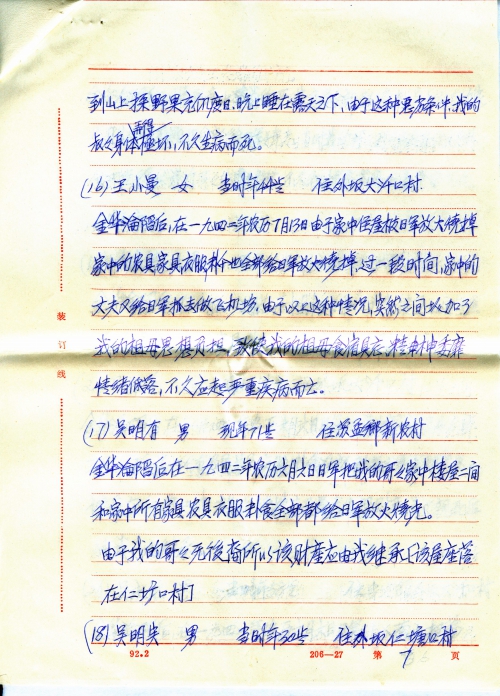 到山上採野果充饥度日,晚上睡在露天之下,由于这种恶劣条件,我的
叔叔身体極坏,不久生病而死。
(16) 王小曼 女 当时年44岁 住外坂大圤口村
金华淪陷后,在一九四二年农历7月13日由于家中住屋被日军放火烧掉
家中的农具家具衣服 也全部给日军放火烧掉,过一段时间,家中的
丈夫又给日军抓去做飞机场,由于以上这种情况,突然之间增加了
我的祖母思想 担,致使我的祖母食宿具忘,精神委靡
情绪低落,不久 起严重疾病而亡。
(17) 吴明有 男 现年71岁 住 孟鄉新农村
金华淪陷后在一九四二年农历六月六日日军把我的哥哥家中楼屋二间
和家中所有家具农具衣服 食全部都给日军放火烧光。
由于我的哥哥无後裔所以该财产应由我继承[该屋座落
在仁塘口村]
(18) 吴明 男 当时年30岁 住外坂仁塘口村
装订线
92.2 206—27 第 7 页